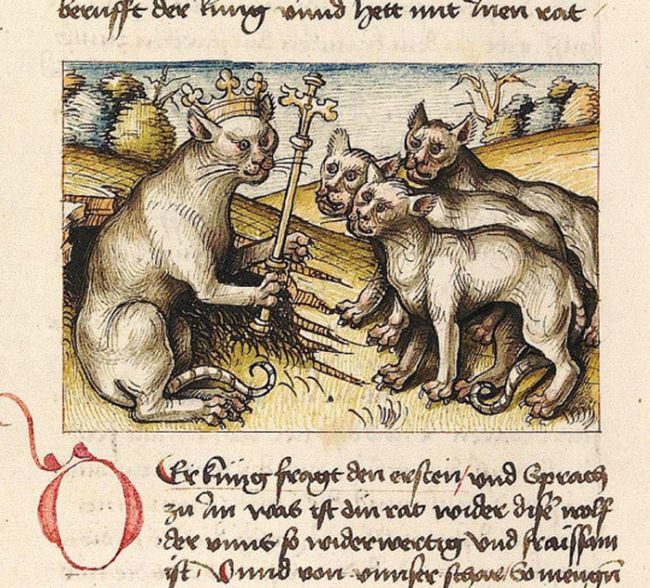 berufft der kung vnnd hett mit Inen rat /
DEr kung fragt den ersten / vnd Sprach
zu Im was ist din rat wider dise wolf
der vnns so widerwertig vnd fraissam
ist. Vnnd von vnnser schar / So